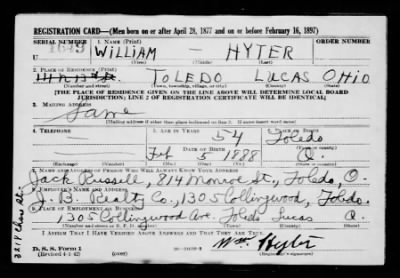 REGISTRATION CARD—(Men born on or after April 28, 1877 and on or before February 16, 1897)
SERIAL NUMBER 1. NAME (Print)
U 1649 WILLIAM — HYTER
(First) (Middle) (Last)
2. PLACE OF RESIDENCE (Print)
TOLEDO LUCAS OHIO
(Number and street) (Town, township, village, or city) (County) (State)
[THE PLACE OF RESIDENCE GIVEN ON THE LINE ABOVE WILL DETERMINE LOCAL BOARD
JURISDICTION; LINE 2 OF REGISTRATION CERTIFICATE WILL BE IDENTICAL]
3. MAILING ADDRESS
Same
[Mailing address if other than place indicated on line 2. If same insert word same]
4. TELEPHONE 5. AGE IN YEARS 6. PLACE OF BIRTH
54 Toledo
DATE OF BIRTH (Town or county)
Feb 5 1888 O.
(Exchange) (Number) (Mo.) (Day) (Yr.) (State or country)
7. NAME AND ADDRESS OF PERSON WHO WILL ALWAYS KNOW YOUR ADDRESS
Jack Russell, 814 Monroe St., Toledo, O.
8. EMPLOYER'S NAME AND ADDRESS
J. B. Realty Co., 1305 Collingwood, Toledo.
9. PLACE OF EMPLOYMENT OR BUSINESS
1305 Collingwood Ave. Toledo Lucas O
(Number and street or R. F. D. number) (Town) (County) (State)
I AFFIRM THAT I HAVE VERIFIED ABOVE ANSWERS AND THAT THEY ARE TRUE.
D. S. S. Form 1
(Revised 4-1-42) (over)
Wm Hyter
(Registrant's signature)